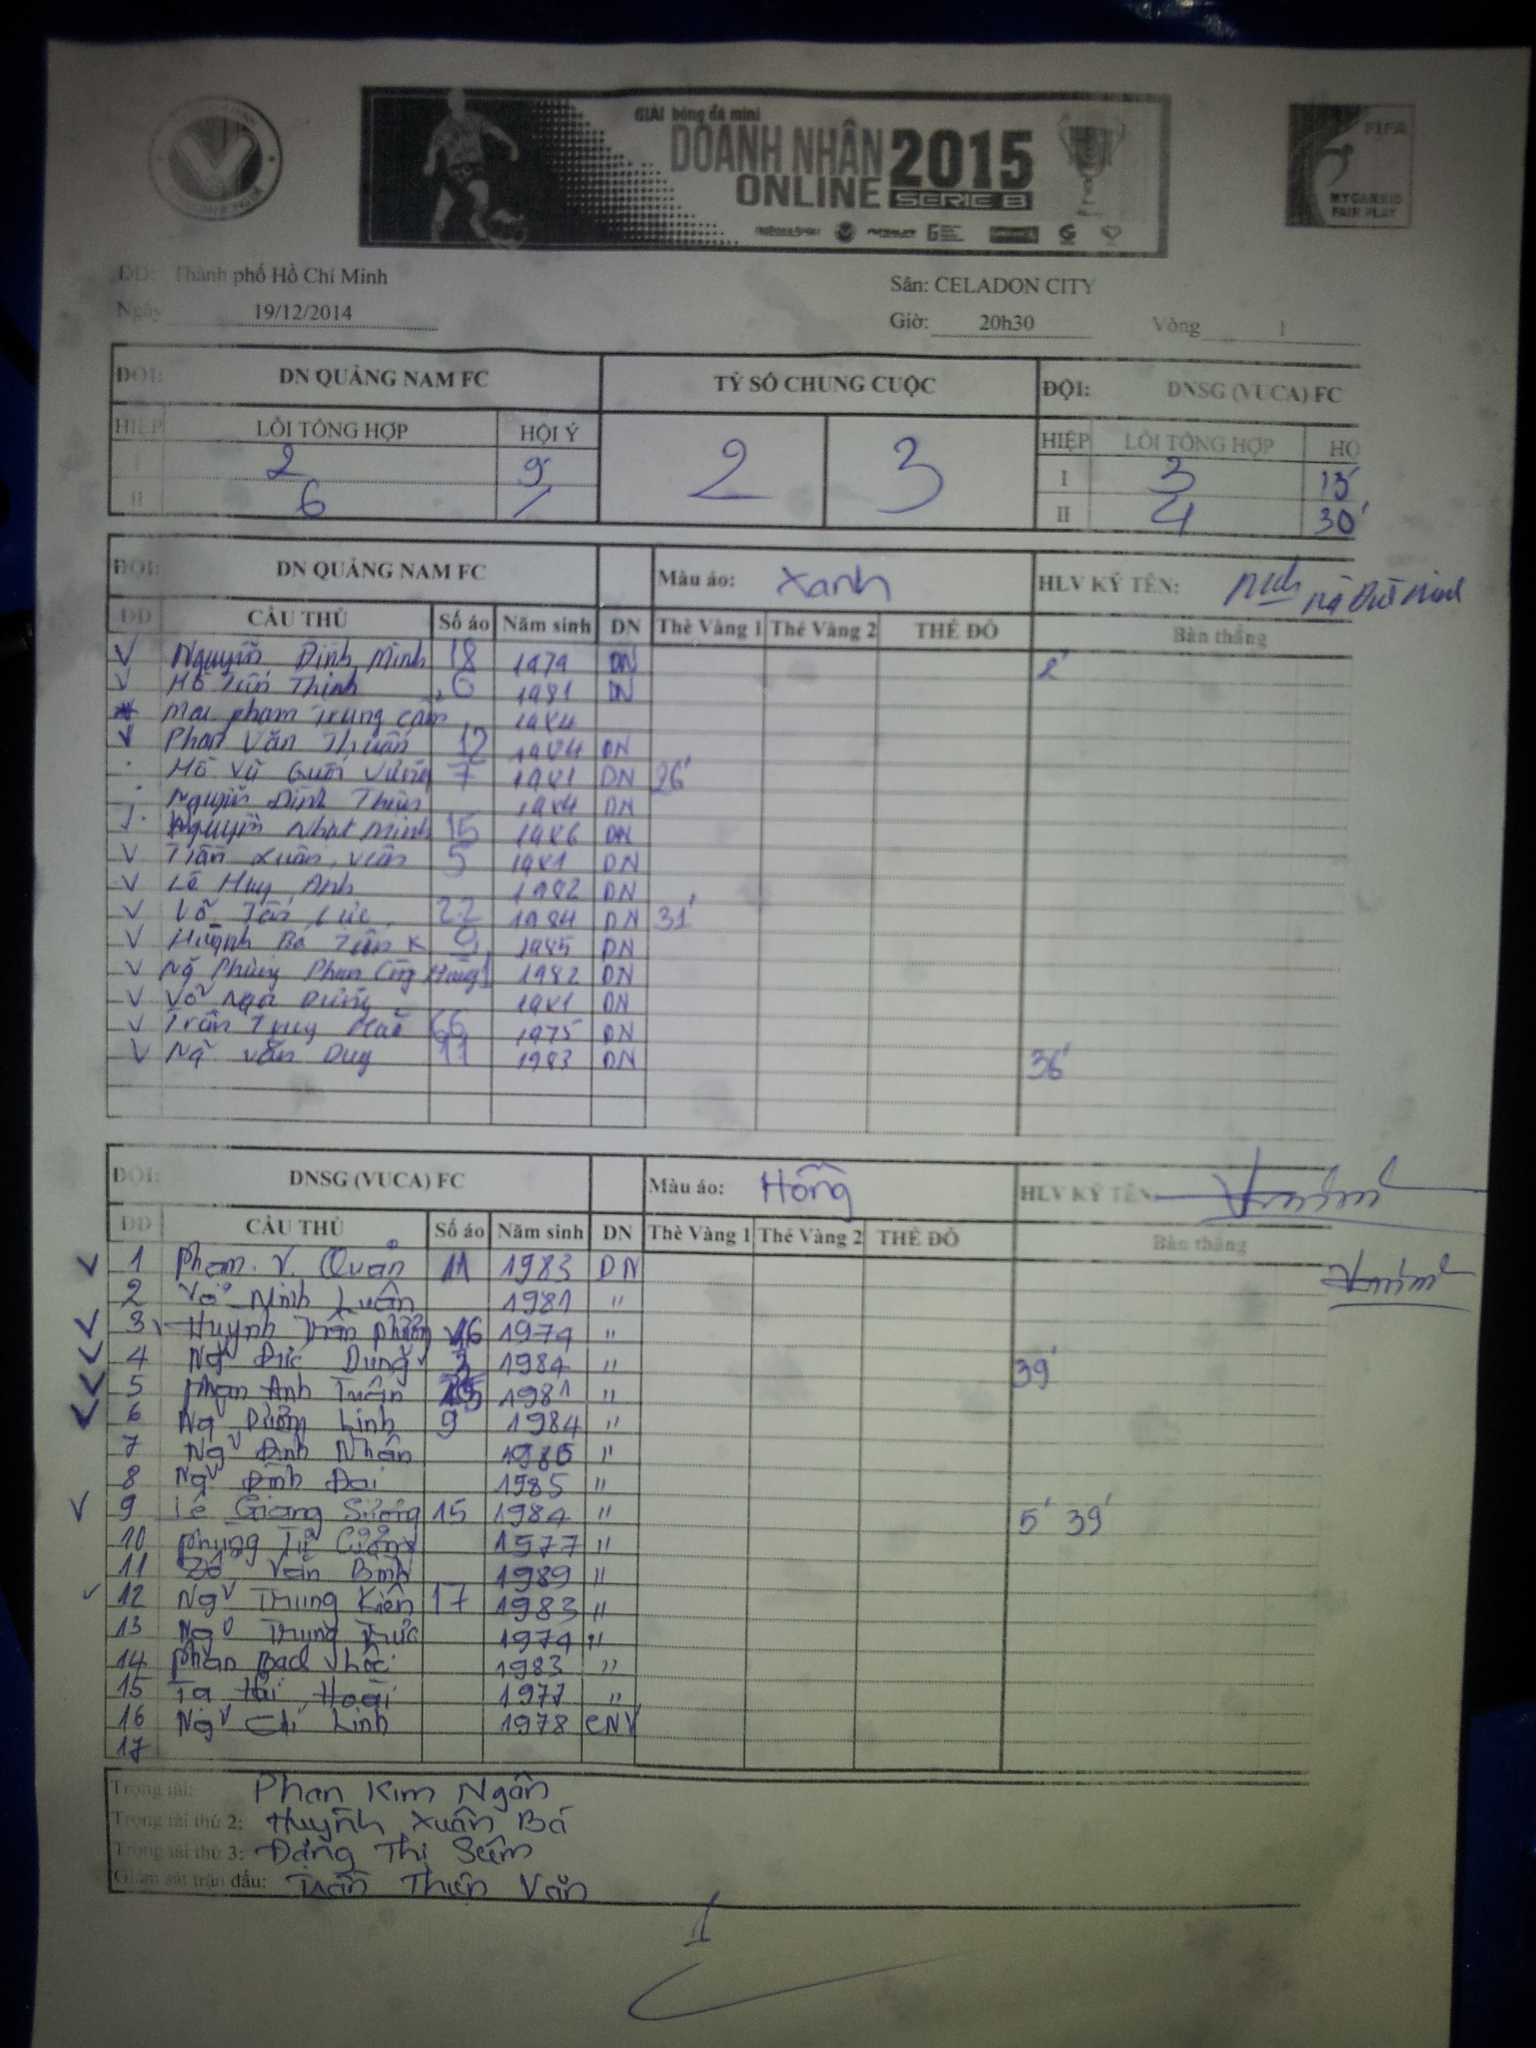 GIẢI bóng đá mini
DOANH NHÂN 2015
ONLINE SERIE B
FIFA
MY GAME IS
FAIR PLAY
DD: Thành phố Hồ Chí Minh
Sân: CELADON CITY
Ngày 19/12/2014
Giờ: 20h30 Vòng 1
ĐỘI: DN QUẢNG NAM FC TỶ SỐ CHUNG CUỘC ĐỘI: DNSG (VUCA) FC
HIỆP LỖI TỔNG HỢP HỘI Ý 2 3 HIỆP LỖI TỔNG HỢP HỘ
I 2 9' I 3 15'
II 6 / II 4 30'
ĐỘI: DN QUẢNG NAM FC Màu áo: Xanh HLV KÝ TÊN:
DD CẦU THỦ Số áo Năm sinh DN Thẻ Vàng 1 Thẻ Vàng 2 THẺ ĐỎ Bàn thắng
V Nguyễn Đình Minh 18 1979 DN 2'
V Hồ Tấn Thịnh 6 1981 DN
Mai phạm Trung 1984
V Phan Văn Thuấn 12 1984 DN
Hồ Vũ 7 1981 DN 26'
Nguyễn Đình 1984 DN
Nguyễn Nhật Minh 15 1986 DN
V Trần Xuân 5 1981 DN
V Lê Huy Anh 1982 DN
V Võ Tấn Lực 22 1984 DN 31'
V Huỳnh Bá Tuấn K 9 1985 DN
V Ng Phùng Phan 1 1982 DN
V Võ Ngọ Dũng 1981 DN
V Trần 66 1975 DN
V Ng văn Duy 11 1983 DN 36'
ĐỘI: DNSG (VUCA) FC Màu áo: Hồng HLV KÝ TÊN:
DD CẦU THỦ Số áo Năm sinh DN Thẻ Vàng 1 Thẻ Vàng 2 THẺ ĐỎ Bàn thắng
V 1 Phạm. V. Quản 11 1983 DN
2 Võ Minh Luân 1981 "
V 3 Huỳnh Trần 16 1974 "
V 4 Ng Đức Dũng 1984 " 39'
V 5 Phạm Anh Tuấn 1981 "
V 6 Ng Dương Linh 9 1984 "
7 Ng Đình Nhân 1986 "
8 Ng Đình Đại 1985 "
V 9 Lê Giang Sương 15 1984 " 5' 39'
10 Phùng Tử Cường 1977 "
11 Đỗ Văn Bình 1989 "
V 12 Ng Trung Kiên 17 1983 "
13 Ng Trung Trực 1974 "
14 phan 1983 "
15 Tạ Hải Hoài 1977 "
16 Ng Chí Linh 1978 CNV
17
Trọng tài: Phan Kim Ngân
Trọng tài thứ 2: Huỳnh Xuân Bá
Trọng tài thứ 3: Đặng Thị Sữm
Giám sát trận đấu: Trần Thiện Văn